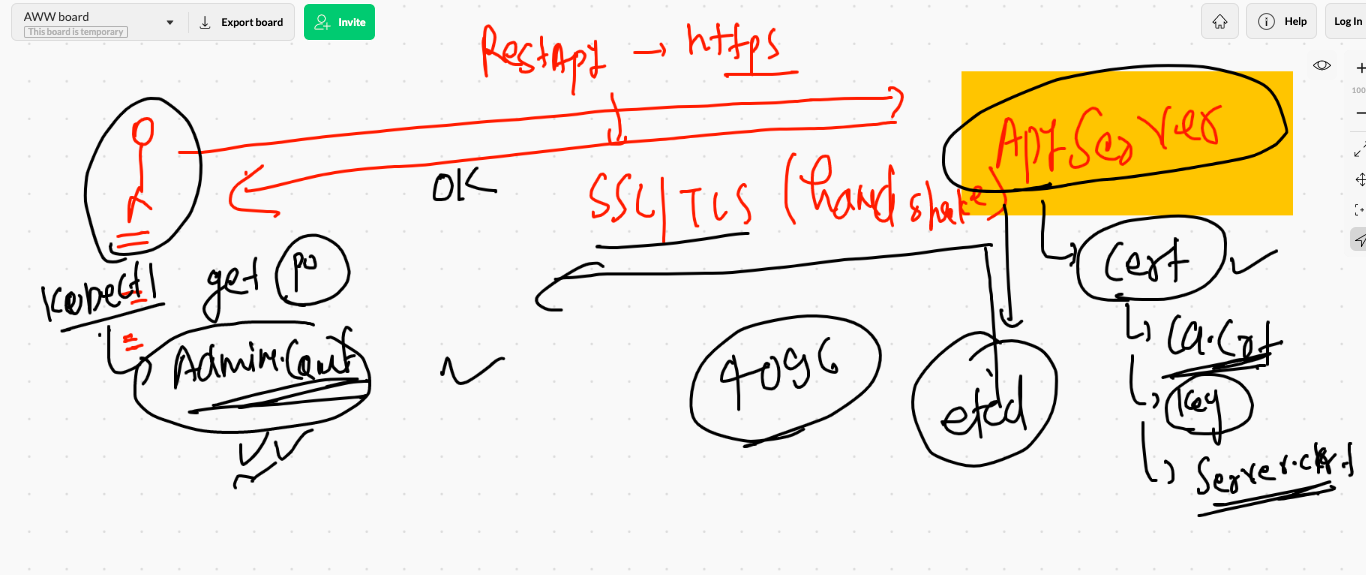 AWW board
This board is temporary
Export board
Invite
Help
Log In
100
RestApi → https
Api Server
OK
SSL/TLS (hand shake)
Kubectl get po
Admin.Conf
4096
etcd
Cert
CA.Crt
Key
Server.crt